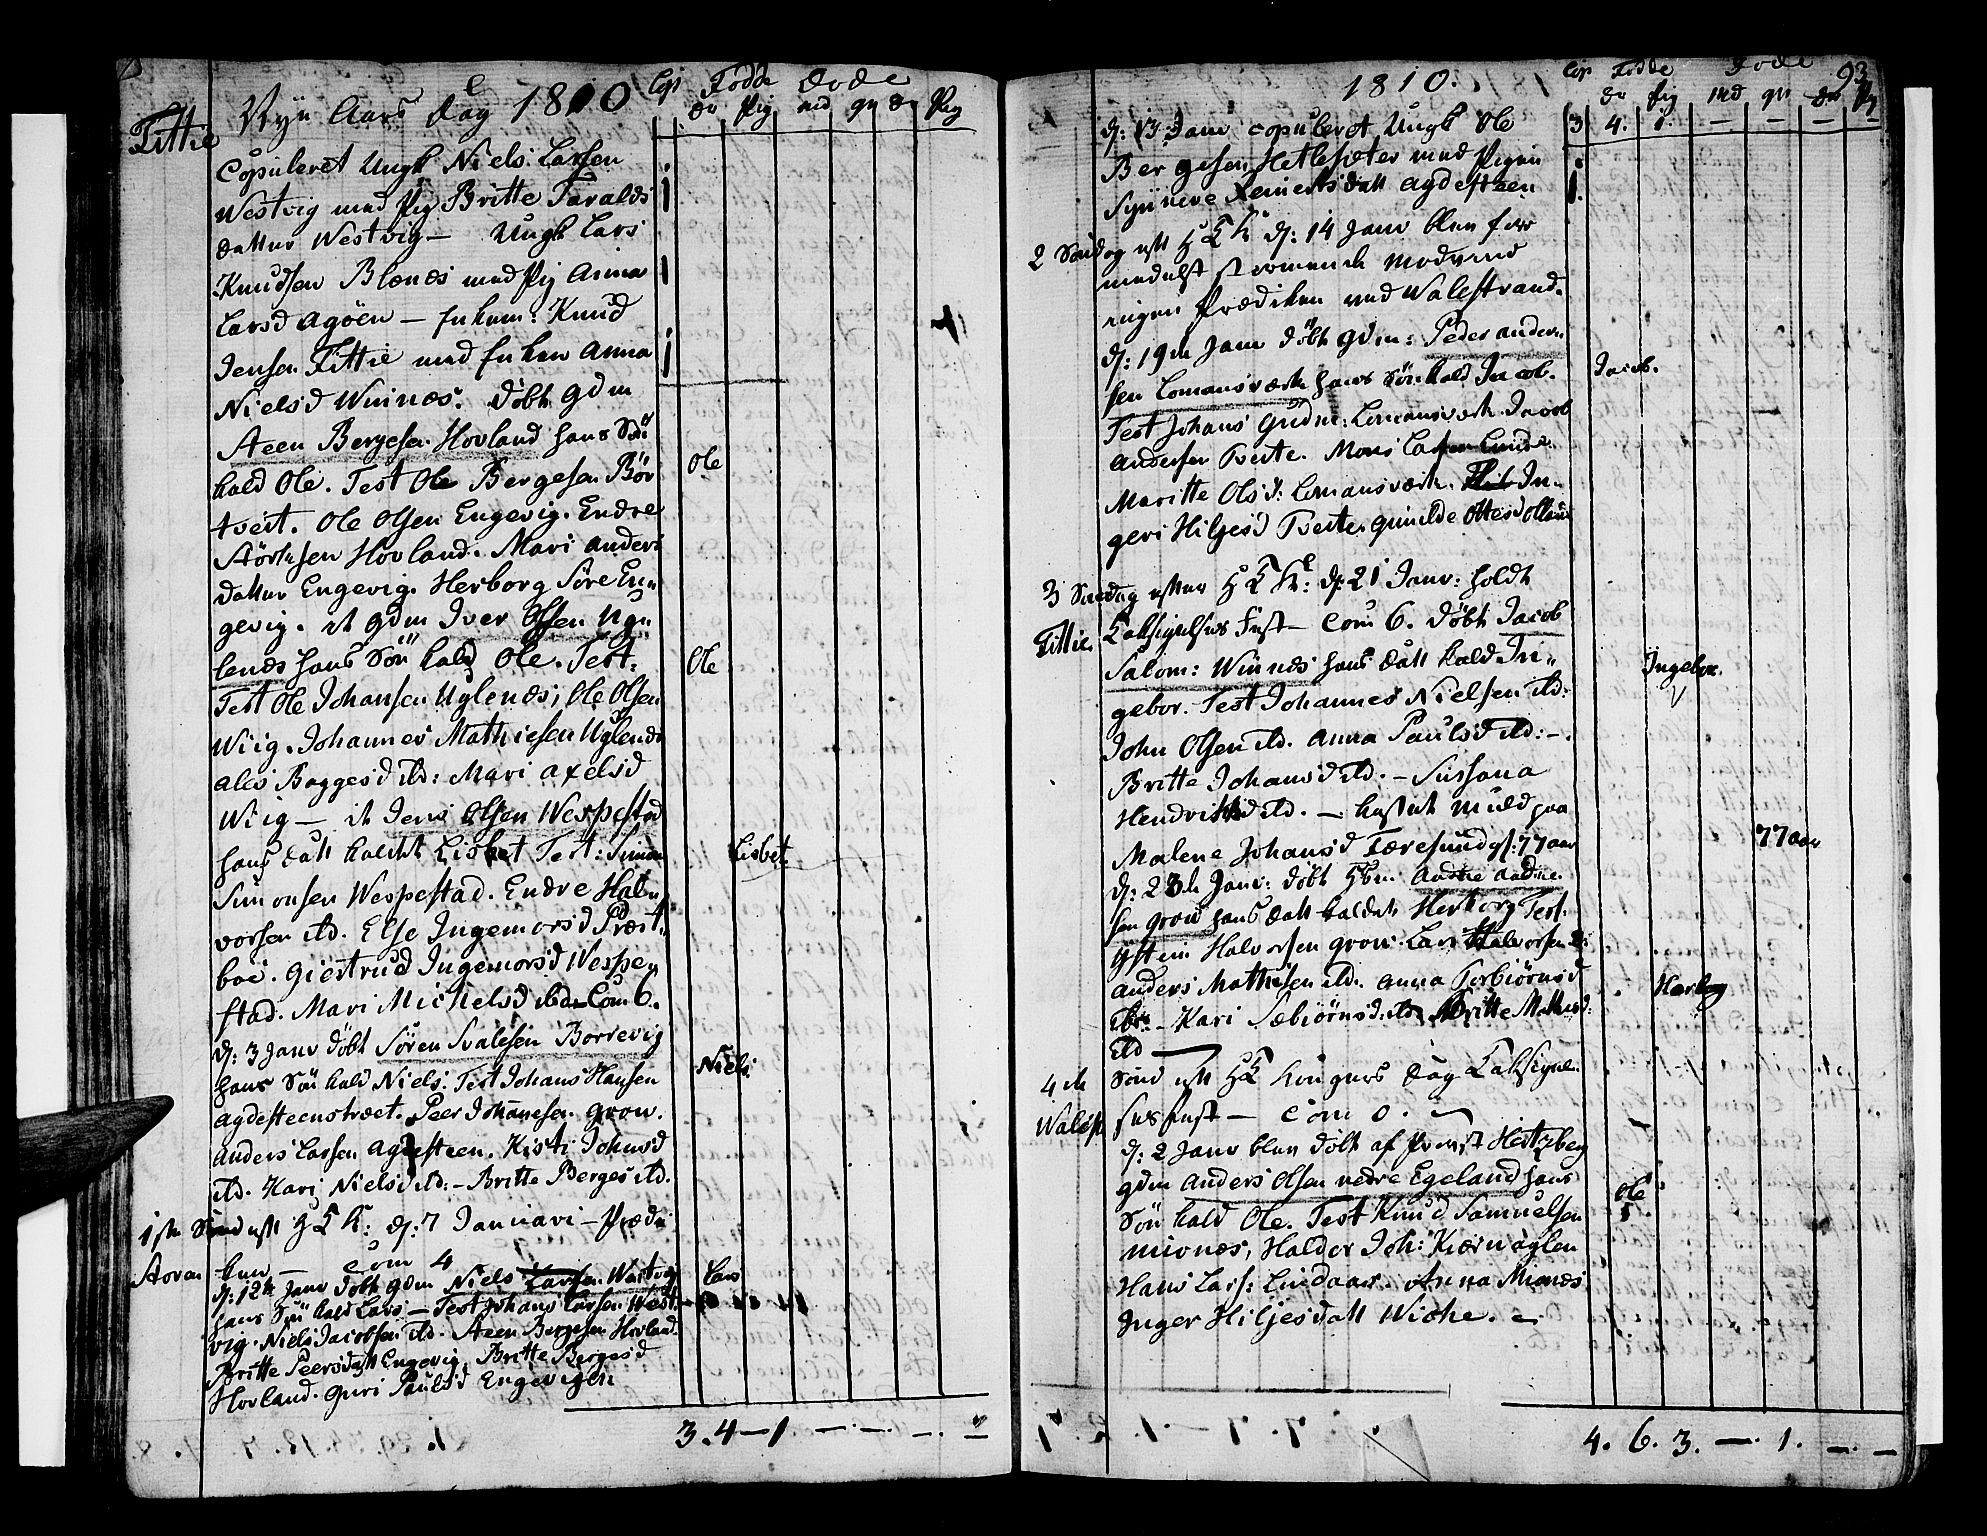 Nyt Aars Dag 1810
Cop Fødde Døde
dr Pig md qv dr Pig
Fittie
Copuleret Ungk Niels Larsen
Westvig med Pig Britte Taralds
datter Westvig — Ungk Lars
Knudsen Blænes med Pig Anna
Larsd Agöen — Enkem: Knud
Jensen Fittie med Enken Anna
Nielsd Winnes. Döbt Gdm
Aeen Bergesen Hovland hans Sön
kald Ole. Test Ole Bergesen Bör
Ole
tveit. Ole Olsen Engevig. Endre
Störksen Hovland. Mari Anders
datter Engevig. Herborg Söre En„
gevig. it Gdm Iver Olsen Ug„
lenes hans Sön kald Ole. Test:
Ole
Test Ole Johansen Uglenes; Ole Olsen
Wiig. Johannes Mathiesen Uglenes
Ales Baggesd ibd: Mari Axelsd
Wiig — it Jens Olsen Wespestad
hans datt kaldet Lisbet Test: Simon
Lisbet
Simonsen Wespestad. Endre Hal„
vorsen ibd. Else Ingemorsd Præst„
boe. Giertrud Ingemorsd Wespe„
stad. Mari Michelsd ibd — Com 6.
d: 3 Janv Döbt Sören Salesen Borrevig
hans Sön kald Niels. Test Johans Hansen
Niels.
Agdesteenstræet. Peer Johanesen Grov.
Anders Larsen Agdesteen. Kisti Johansd
ibd. Kari Nielsd ibd: — Britte Berges ibd.
1ste Sönd eft H 3 K: d: 7 Januari — Prædi
Storøen ken — Com 4
d: 12te Janv Döbt Gdm Niels Larsen Westvig
Lars
hans Sön kald Lars — Test Johans Larsen West
vig. Niels Jacobsen ibd. Aeen Bergesen Hovland
Britte Peersdatt Engevig, Britte Bergesd
Hovland. Guri Paulsd Engevigen
3. 4 — 1 — — — —
1810.
93
Cop Fødde Døde
dr Pig md qv dr Pig
3 4. 1. — — — —
d: 13 Janv copuleret Ungk Ole
Bergesen Hetlesæter med Pigen
Synneve Reinertsdatt Agdesteen
1.
2 Søndag eft H 3 K d: 14 Janv blev for
medelst stormende Modvind
ingen Prædiken ved Walestrand.
d: 19de Janv Döbt Gdm: Peder Ander„
sen Lomansværk hans Sön kald Jacob.
Jacob.
Test Johans Gudm: Lomansværk. Jacob
Andersen Tveite. Mons Larsen Lunde
Maritte Olsd: Lomansværk. In„
geri Hiljesd Tveite. Gunilde Ottesd
3 Søndag efter H 3 K: d: 21 Janv: holdt
Fittie. Taksigelses Fest — Com 6. Döbt Jacob
Salom: Winnes hans datt kald In„
Ingebor.
gebor. Test Johannes Nielsen ibd:
John Olsen ibd. Anna Paulsd ibd: —.
Britte Johansd ibd. — Sussana
Hendriksd ibd. — kastet Muld paa
Malene Johansd Færesund gl: 77 aar
77 aar
d: 23de Janv: Döbt Hbm: Andne Andne
sen Grow hans datt kaldet Herborg Test.
Östein Halvorsen Grow. Lars Halvorsen ib
Anders Mathisen ibd. Anna Torbiörnsd
Herborg
Kari Sæbiörnsd: ibd. Britte Mathisd:
ibd —
4de Sönd eft H 3 Kongers Dag Taksigel
Walest ses fest — Com 0.
d: 2 Janv blev Döbt af Provst Hertzberg
Gdm Anders Olsen nedre Egeland hans
Ole
Sön kald Ole. Test Knud Samuelsen
Mionæs, Haldor Joh: Kiernaglen
Hans Lars: Lindaas. Anna Mionæs
Inger Hiljesdatt Wiche. —
4. 6. 3. — 1. — —